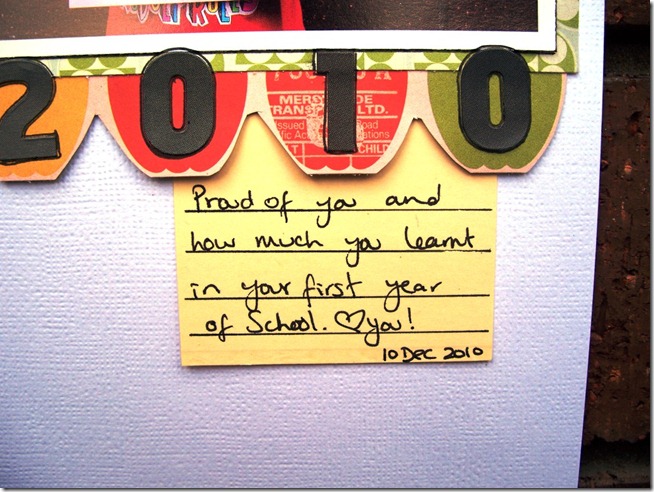 2010
MERSEYSIDE
TRANSPORT LTD.
Issued
CHILD
Proud of you and
how much you learnt
in your first year
of School. ♡ you!
10 Dec 2010